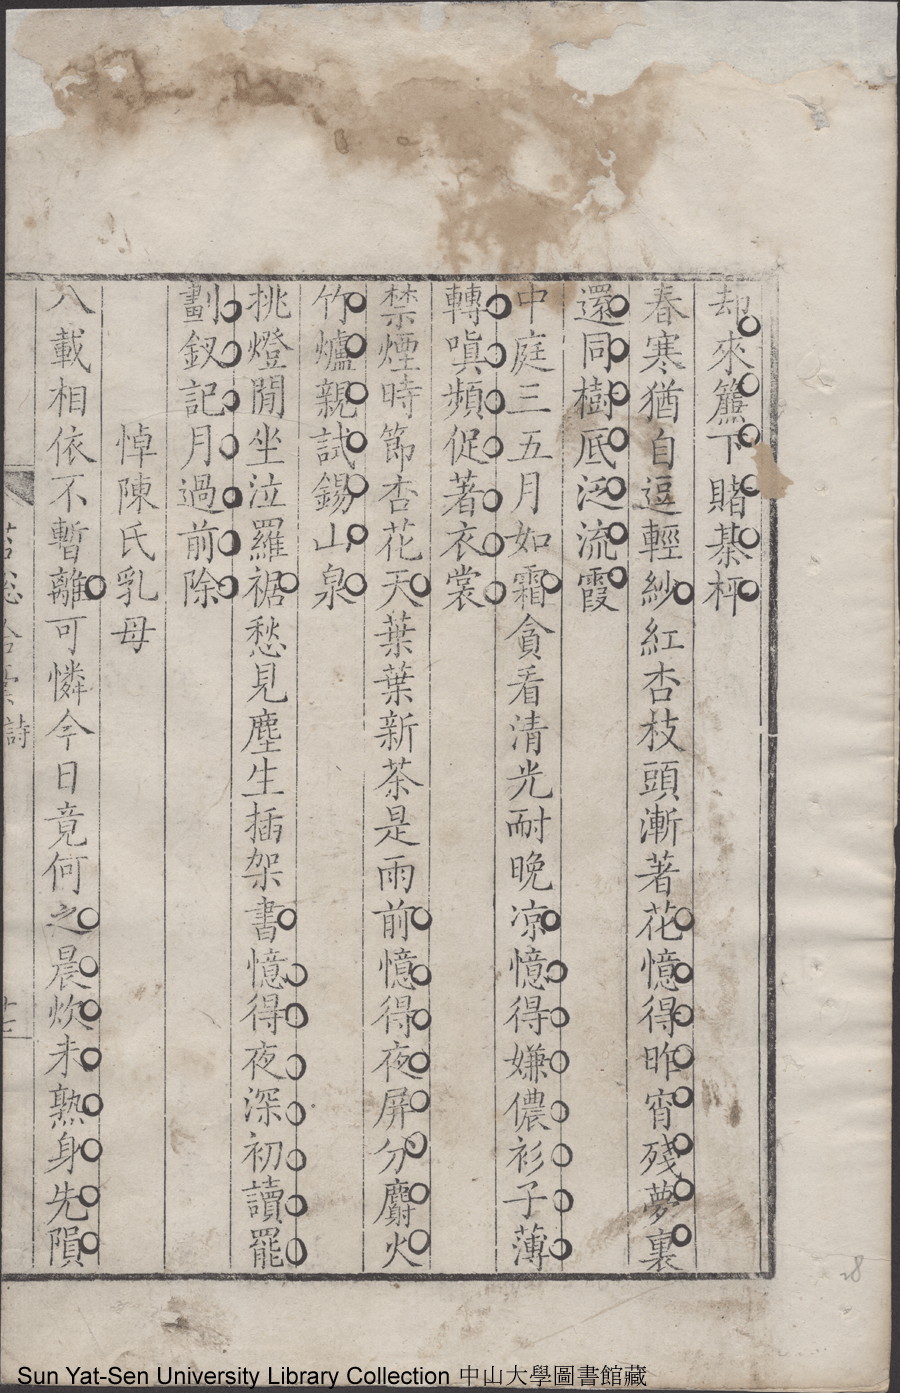 却來簾下賭棊枰
春寒猶自逗輕紗紅杏枝頭漸著花憶得昨宵殘夢裏
還同樹底泛流霞
中庭三五月如霜貪看清光耐晚凉憶得嫌儂衫子薄
轉嗔頻促著衣裳
禁煙時節杏花天葉葉新茶是雨前憶得夜屏分麝火
竹爐親試錫山泉
挑燈閒坐泣羅裾愁見塵生插架書憶得夜深初讀罷
劃釵記月過前除
悼陳氏乳母
八載相依不暫離可憐今日竟何之晨炊未熟身先隕
詩
Sun Yat-Sen University Library Collection 中山大學圖書館藏
28